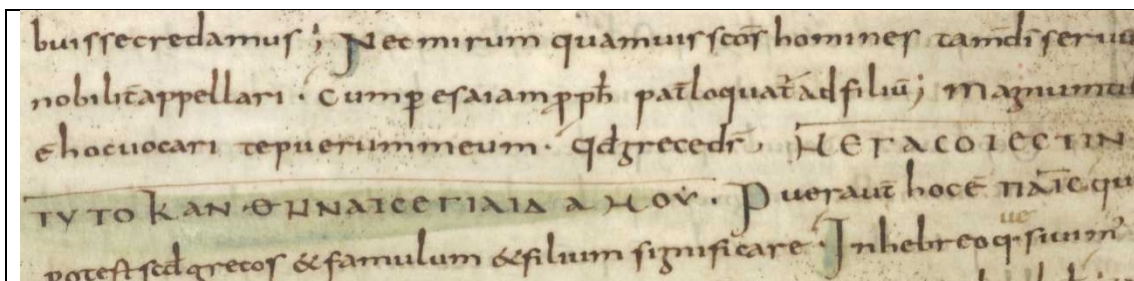 buissecredamus; Nec mirum quamuis scōs homines tam̄ dī seruo
nobilit̄ appellari · Cum p̱ esaiam p̱ph̄ pat̄ loquat̄ ad filiū; Magnum t
ē hoc uocari te puerum meum · q̄d grece dr̄ · ΜΕΓΑ COI ECTIN
TY TO KAN·ΘHNAI CE ΓΙΑΙΔ Α ΜΟΥ · Puer aut̄ hoc ē ΠΑΙC qu
potest scd̄ grecos & famulum & filium significare · In hebreo q· siui m̄
ue